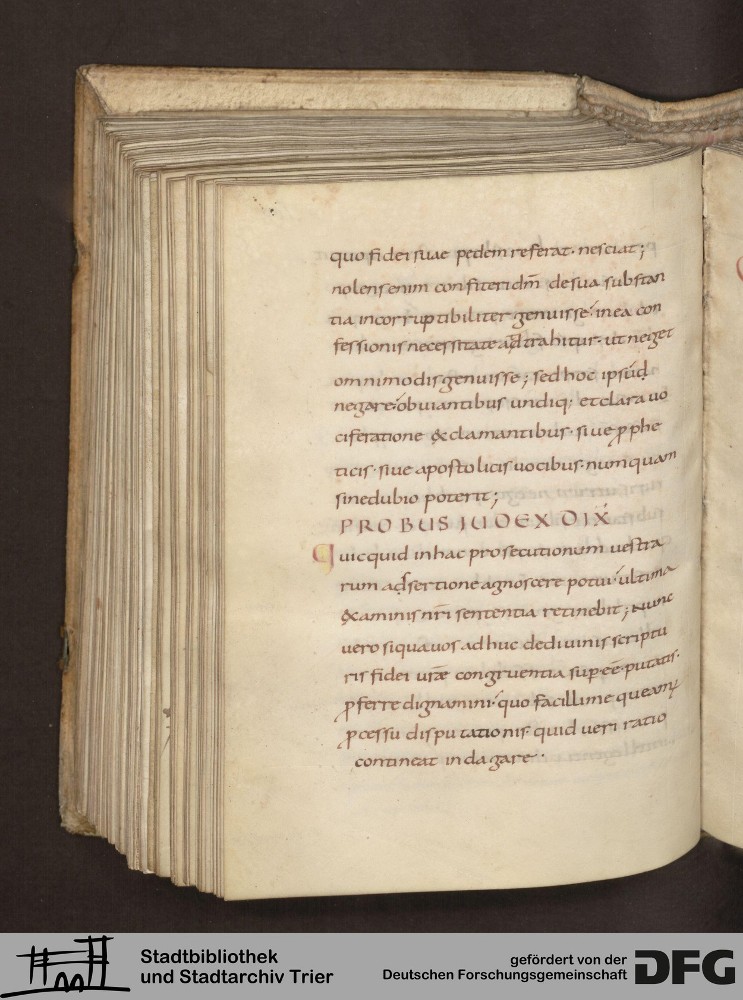 quo fidei suae pedem referat· nesciat;
nolens enim confiteri dm̄ de sua substan
tia incorruptibiliter genuisse· in ea con
fessionis necessitate adtrahitur· ut neget
omnimodis genuisse; sed hoc ipsud
negare· obviantibus undiq; et clara uo
ciferatione &clamantibus· siue ꝓphe
ticis· siue apostolicis uocibus· numquam
sine dubio poterit;
PROBUS IUDEX DIX̄
Quicquid in hac prosecutionum uestra
rum adsertione agnoscere potui· ultima
&aminis nr̄i sententia retinebit; Nunc
uero si qua uos adhuc de diuinis scriptu
ris fidei ur̄ae congruentia sup.eē· putatis·
ꝓferre dignamini· quo facillime queam;
ꝓcessu disputationis· quid ueri ratio
contineat indagare·
Stadtbibliothek
und Stadtarchiv Trier
gefördert von der
Deutschen Forschungsgemeinschaft
DFG